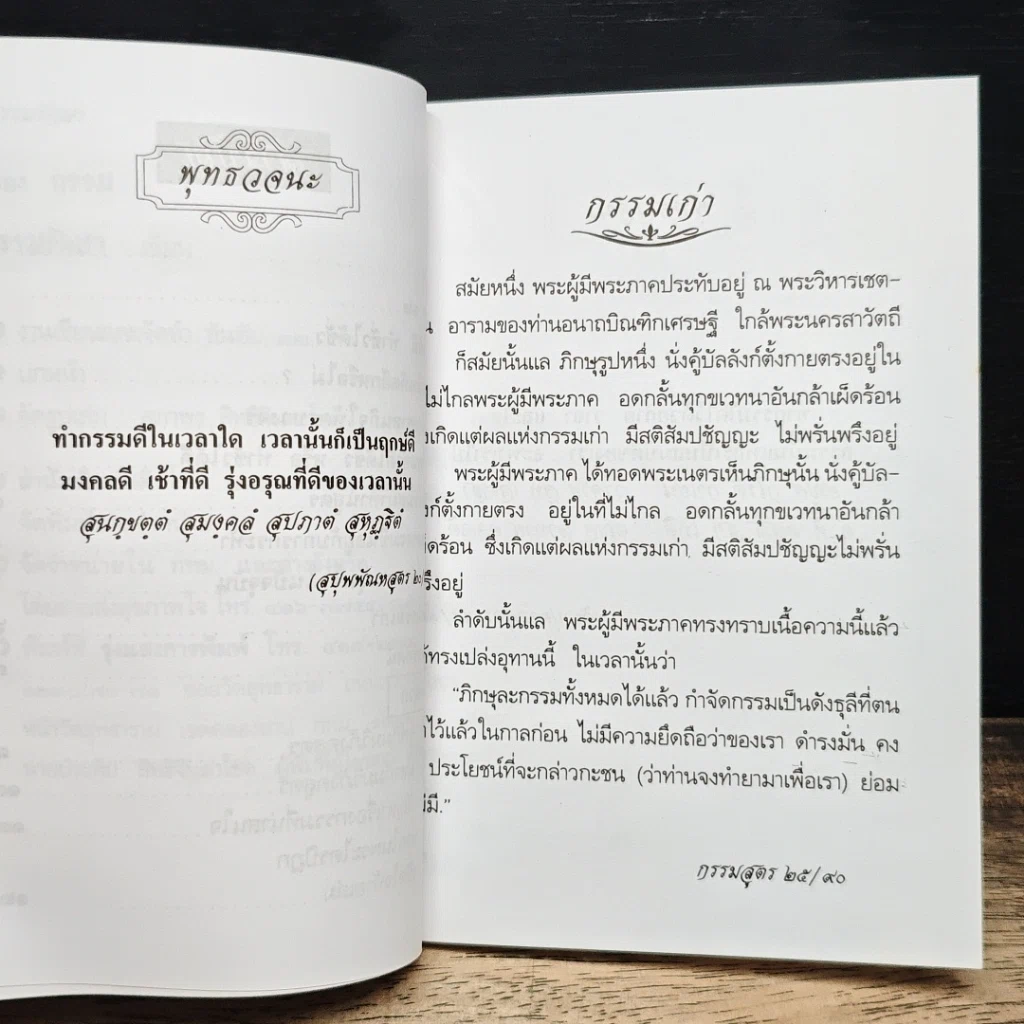 พุทธวจนะ
ทำกรรมดีในเวลาใด เวลานั้นก็เป็นฤกษ์ดี
มงคลดี เช้าที่ดี รุ่งอรุณที่ดีของเวลานั้น
สุนกฺขตฺตํ สุมงฺคลํ สุปภาตํ สุหุฏฺฐิตํ
(สุปุพพัณหสูตร ๒๐
กรรมเก่า
สมัยหนึ่ง พระผู้มีพระภาคประทับอยู่ ณ พระวิหารเชต-
น อารามของท่านอนาถบิณฑิกเศรษฐี ใกล้พระนครสาวัตถี
ก็สมัยนั้นแล ภิกษุรูปหนึ่ง นั่งคู้บัลลังก์ตั้งกายตรงอยู่ใน
ไม่ไกลพระผู้มีพระภาค อดกลั้นทุกขเวทนาอันกล้าเผ็ดร้อน
งเกิดแต่ผลแห่งกรรมเก่า มีสติสัมปชัญญะ ไม่พรั่นพรึงอยู่
พระผู้มีพระภาค ได้ทอดพระเนตรเห็นภิกษุนั้น นั่งคู้บัล-
งก์ตั้งกายตรง อยู่ในที่ไม่ไกล อดกลั้นทุกขเวทนาอันกล้า
ผ็ดร้อน ซึ่งเกิดแต่ผลแห่งกรรมเก่า มีสติสัมปชัญญะไม่พรั่น
รึงอยู่
ลำดับนั้นแล พระผู้มีพระภาคทรงทราบเนื้อความนี้แล้ว
ด้ทรงเปล่งอุทานนี้ ในเวลานั้นว่า
“ภิกษุละกรรมทั้งหมดได้แล้ว กำจัดกรรมเป็นดังธุลีที่ตน
ไว้แล้วในกาลก่อน ไม่มีความยึดถือว่าของเรา ดำรงมั่น คง
ประโยชน์ที่จะกล่าวกะชน (ว่าท่านจงทำยามาเพื่อเรา) ย่อม
ม่มี.”
กรรมสูตร ๒๕/๙๐